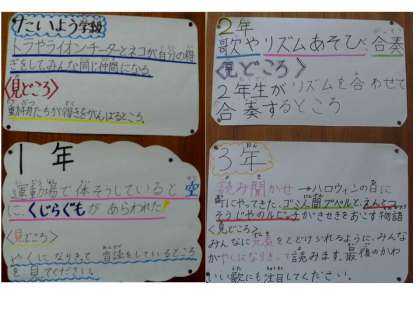 たいよう学級
トラやライオンチーターとネコが自分の種
ぎをして、みんな同じ仲間になる
〈見どころ〉
動物たちが
がんばるところ
1年
運動場で体そうしていると空
に、くじらぐもがあらわれた!
〈見どころ〉
やくになりきって音読をしているところ
を見てください。
2年
歌やリズムあそび、合奏
〈見どころ〉
2年生がリズムを合わせて
合奏するところ
3年
読み聞かせ→ハロウィンの日に
町にやってきた、ゴミ人間プペルと、えんとつ
そうじやのルビッチがきせきをおこす物語
〈見どころ〉
みんなに
をとどけられるように、みんな
がやくになりきって読みます。最後のかわ
いい歌にも注目してください。